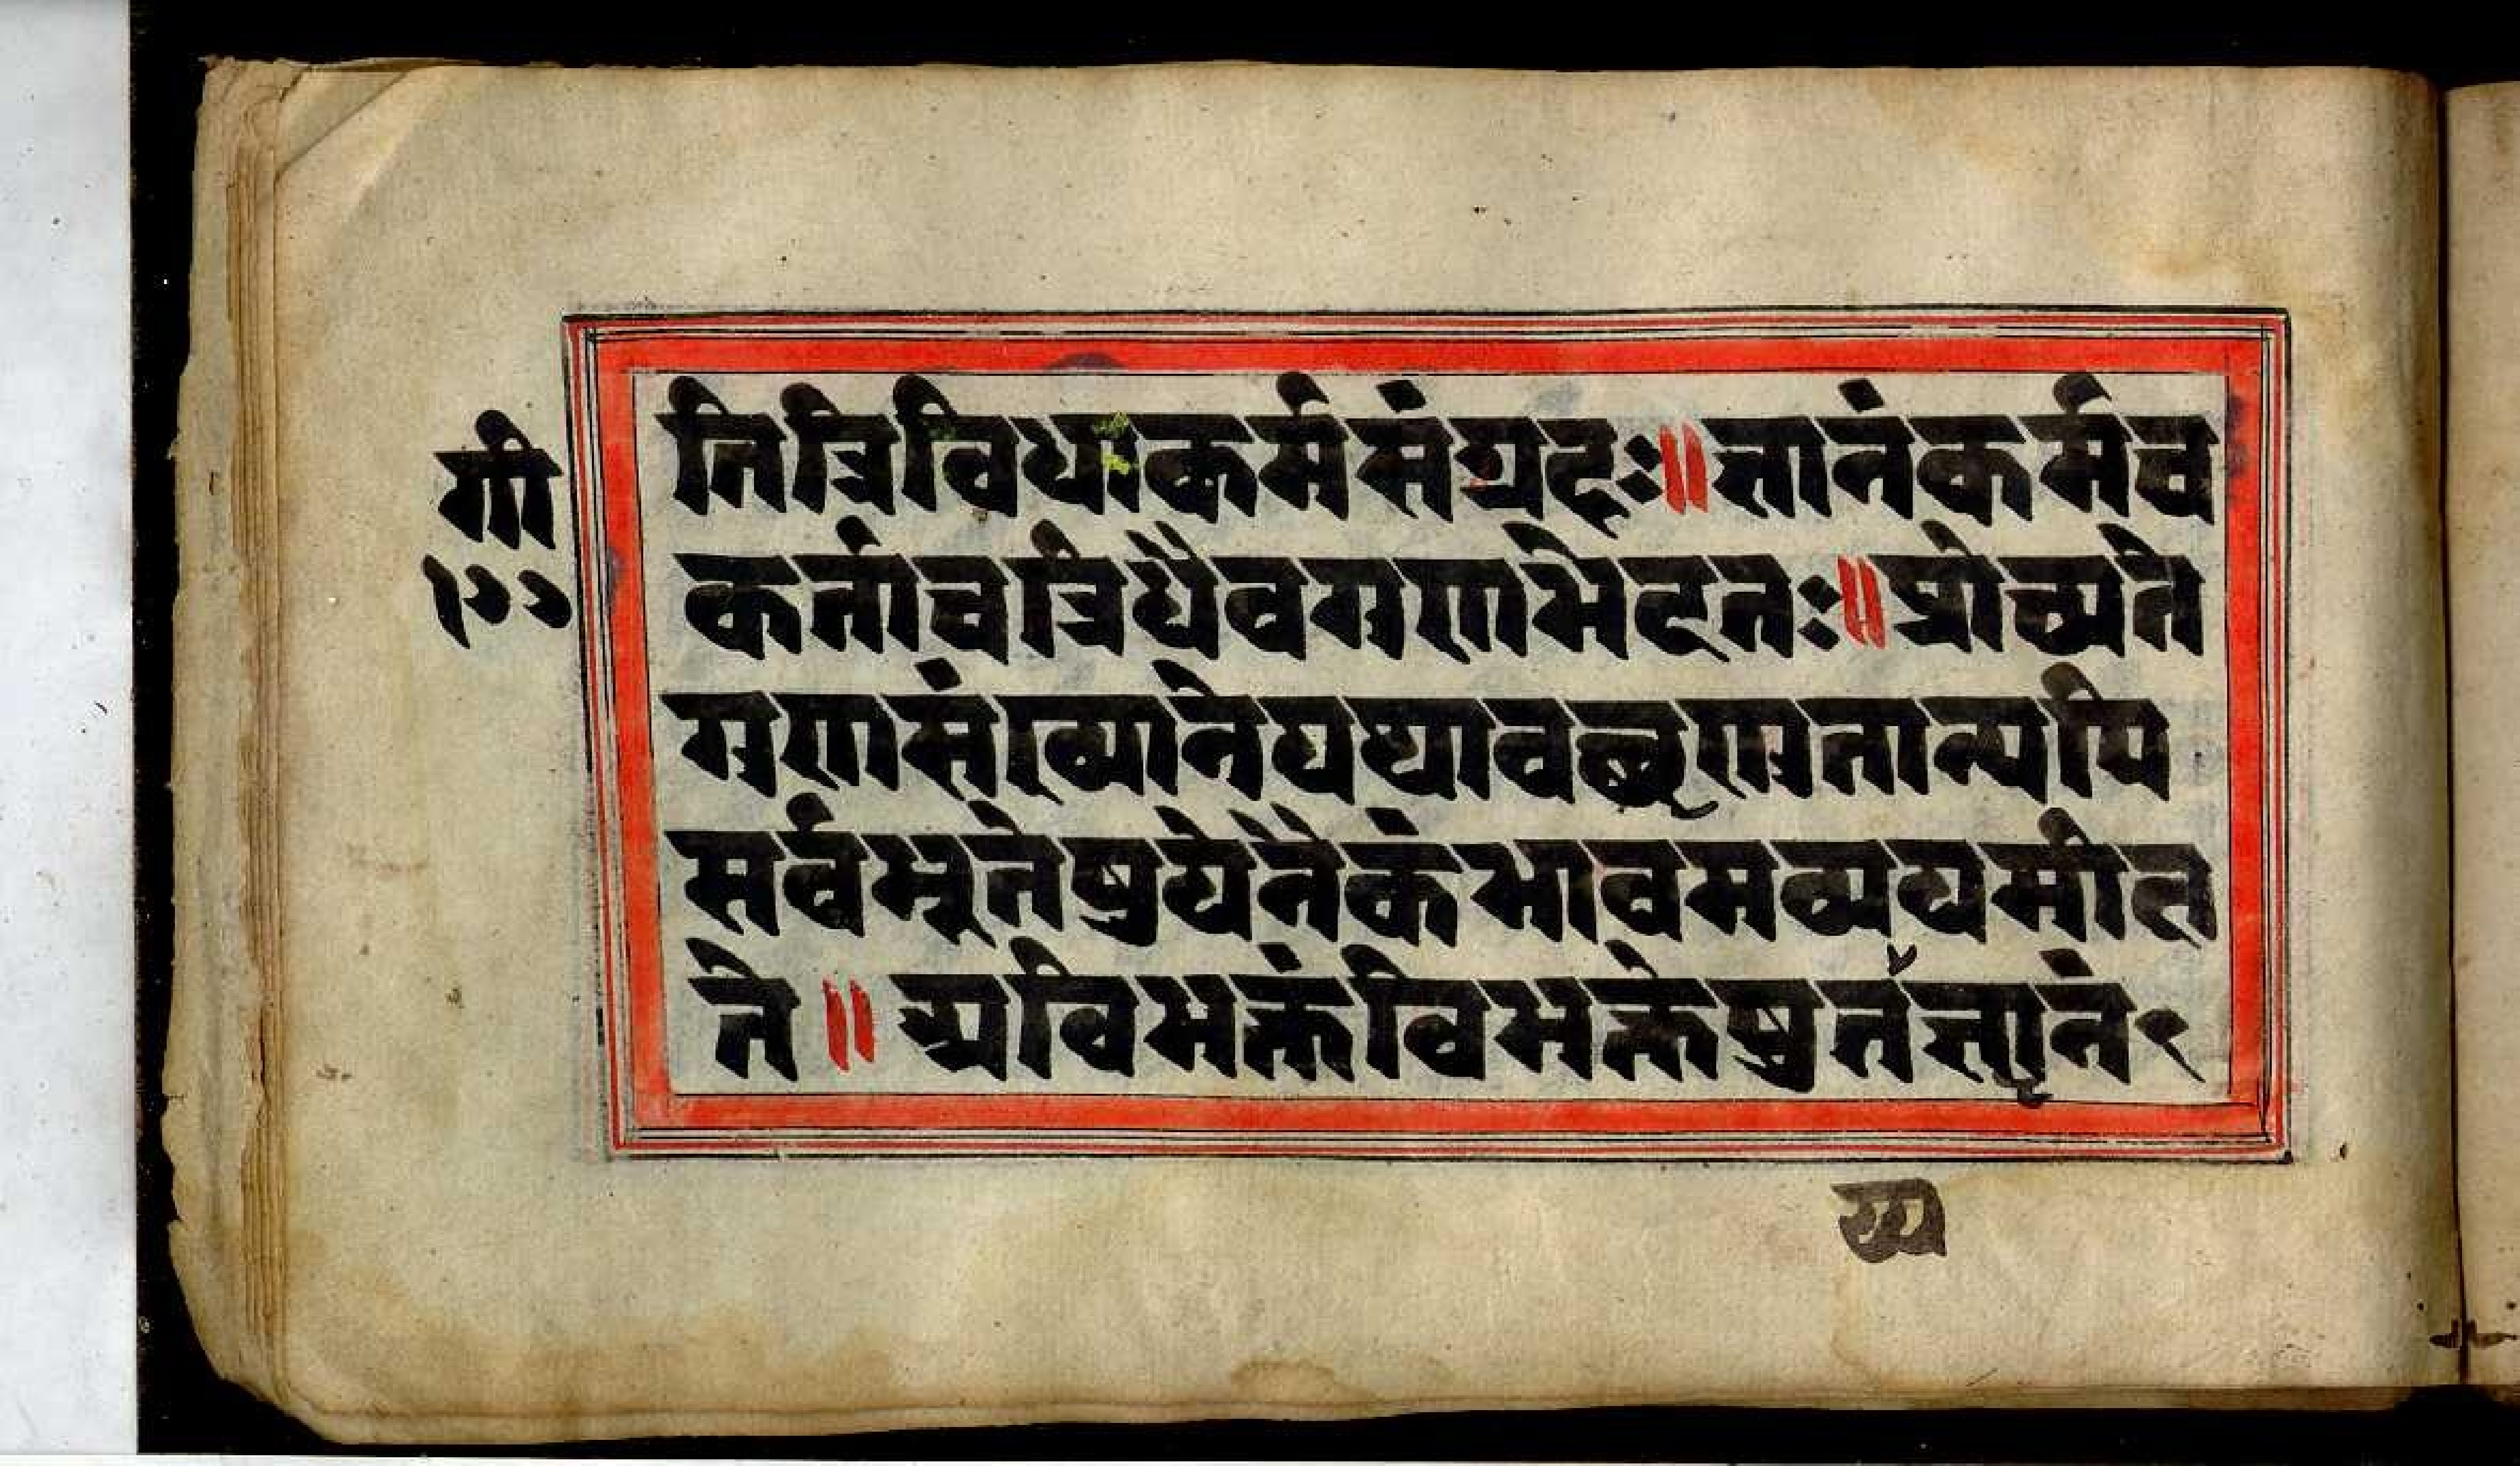 गी
१००
तित्रिविधःकर्मसंग्रहः॥ज्ञानंकर्मच
कर्ताचत्रिधैवगुणभेदतः॥प्रोच्यते
गुणसंख्यानेयथावछृणुतान्यपि
सर्वभूतेषुयेनैकंभावमव्ययमीक्ष
ते॥अविभक्तंविभक्तेषुतंज्ञानं२